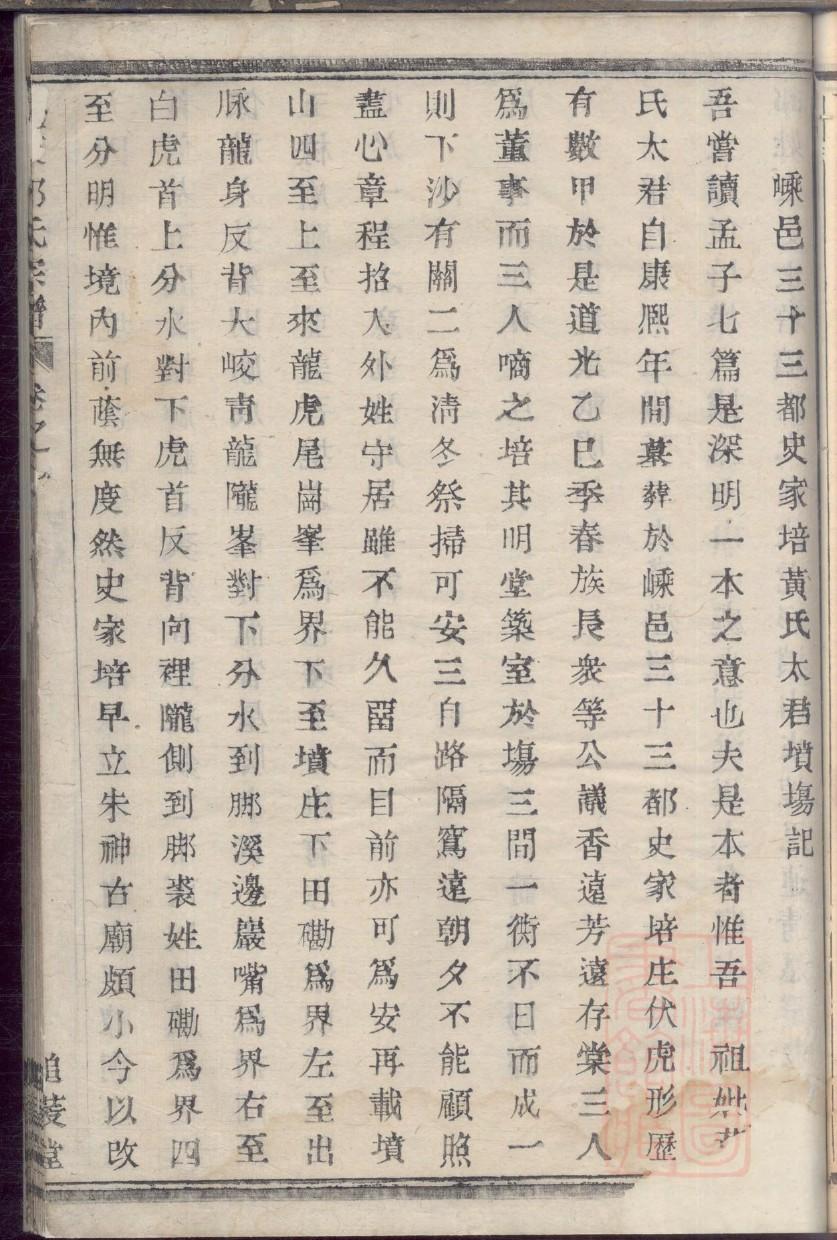 嵊邑三十三都史家培黃氏太君墳塲記
吾嘗讀孟子七篇是深明一本之意也夫是本者惟吾 祖妣
氏太君自康熈年間墓葬於嵊邑三十三都史家培庄伏虎形歷
有數甲於是道光乙巳季春族長衆等公議香遠芳遠存棠三人
爲董事而三人嘀之培其明堂築室於塲三間一衖不日而成一
則下沙有關二爲淸冬祭掃可安三自路隔寫遠朝夕不能顧照
藎心章程招入外姓守居雖不能久畱而目前亦可爲安再載墳
山四至上至來龍虎尾崗峯爲界下至墳庄下田磡爲界左至出
脉龍身反背大峧靑龍隴峯對下分水到脚溪邊巖嘴爲界右至
白虎首上分水對下虎首反背向裡隴側到脚裘姓田磡爲界四
至分明惟境內前蔭無度然史家培早立朱神古廟頗小今以改
氏宗譜 卷之
追菱堂